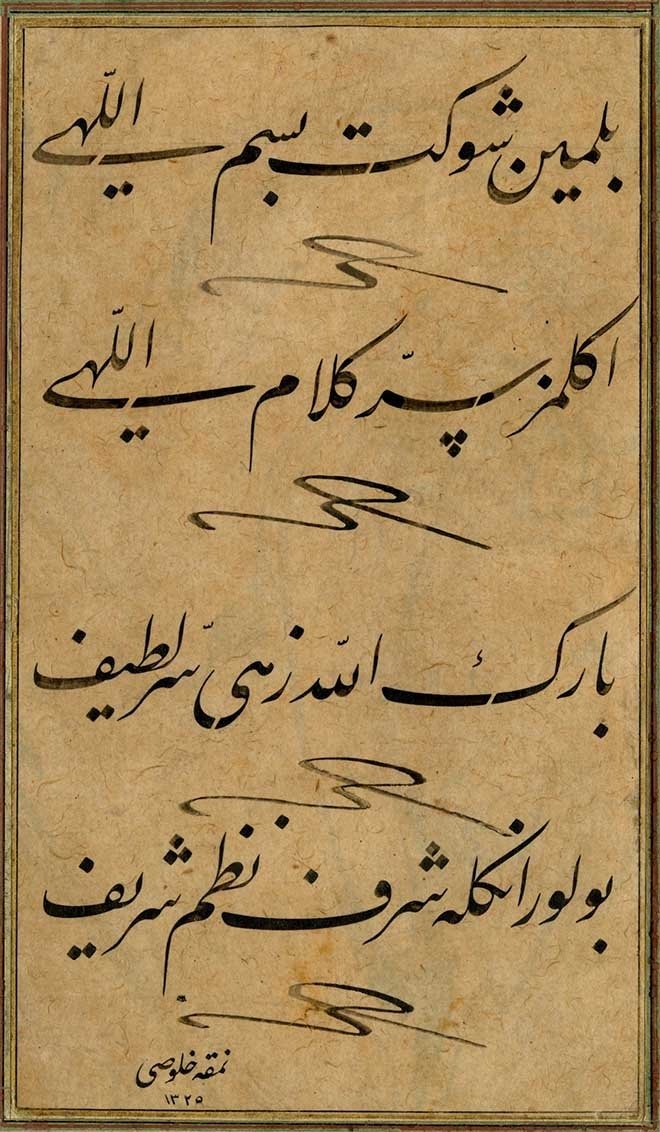 بلمین شوکت بسم اللّهی
اکلمز سرّ کلام اللّهی
بارك اللّه زهی سرّ لطیف
بولور انکله شرف نظم شریف
نمقه خلوصی
١٣٢٥